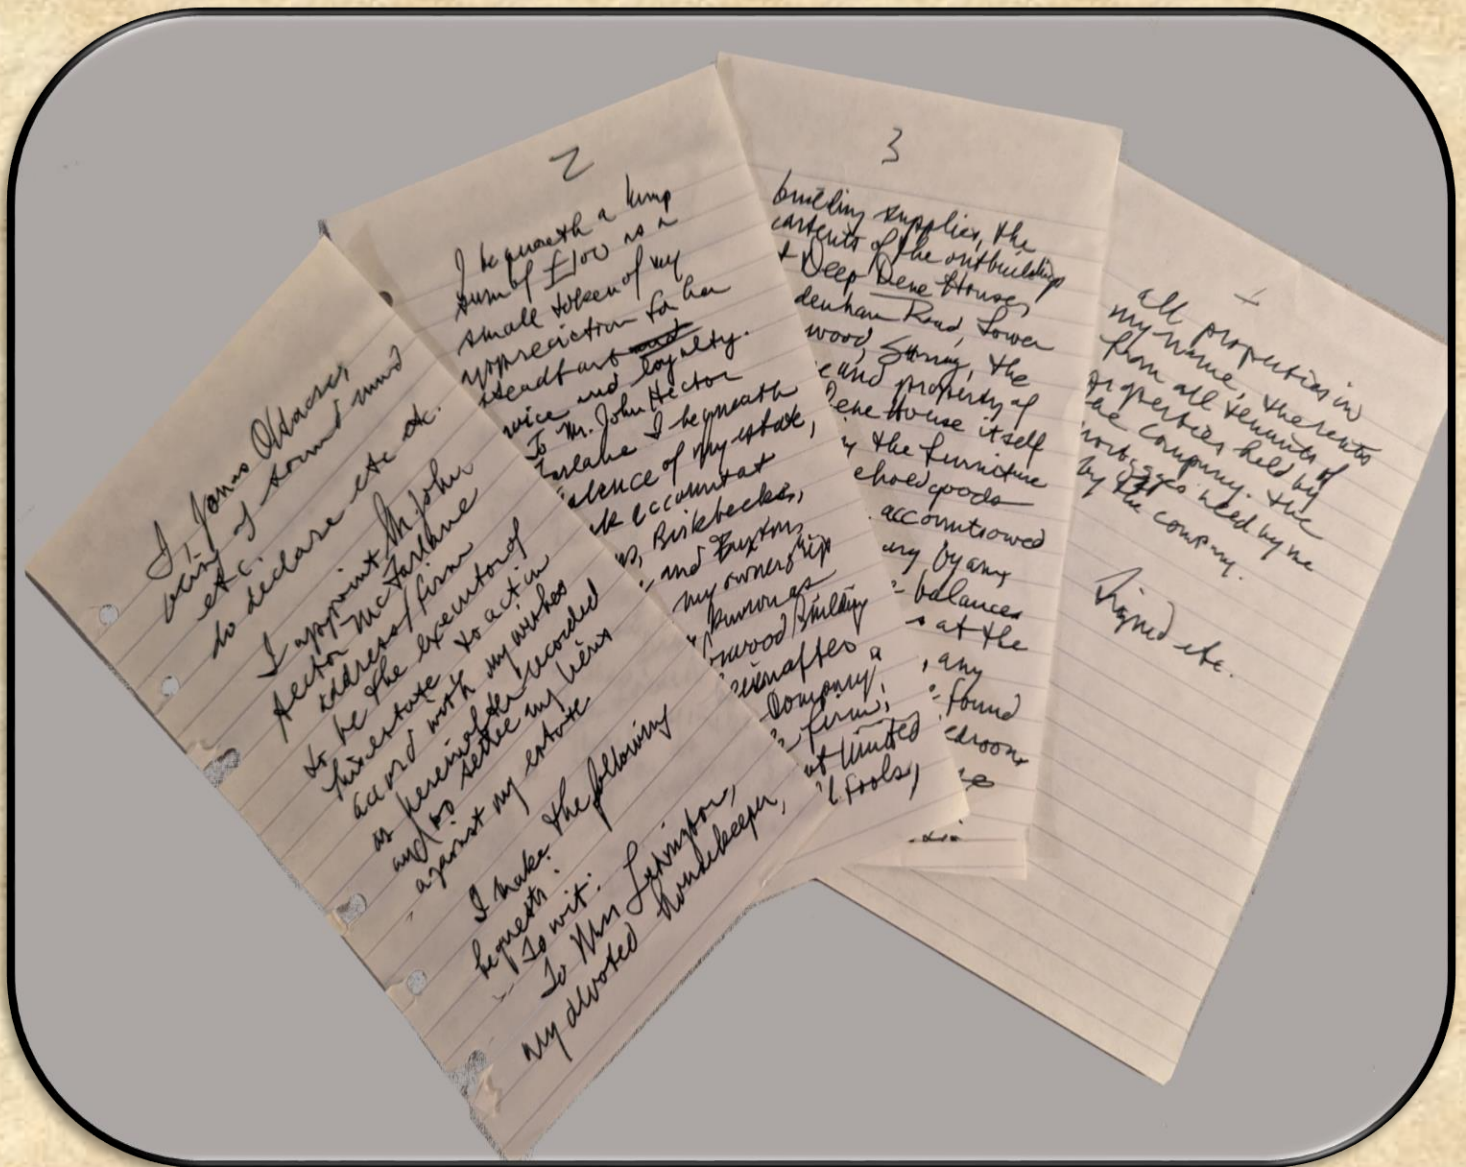 I, Jonas Oldacre,
being of sound mind
etc.
do declare etc etc.
I appoint Mr John
Hector McFarlane
address/firm
to be the executor of
this estate to act in
accord with my wishes
as hereinafter recorded
and so settle my liens
against my estate
I make the following
bequests:
To wit:
To Mrs Lexington,
my devoted housekeeper,
2
I bequeath a lump
sum of £100 as a
small token of my
appreciation for her
steadfast and
service and loyalty.
To Mr. John Hector
McFarlane I bequeath
balance of my estate,
account at
Birkbecks,
and Buxton,
my ownership
known as
Building
hereinafter a
Company,
firm,
not limited
tools,
3
building supplies, the
contents of the outbuildings
Deep Dene House,
Road, Lower
wood, Surrey, the
and property of
Dene House itself
the furniture
goods
account owed
by any
balances
at the
, any
found
4
all properties in
my name, the rents
from all tenants of
properties held by
the company. the
mortgages held by me
by the company.
Signed etc.